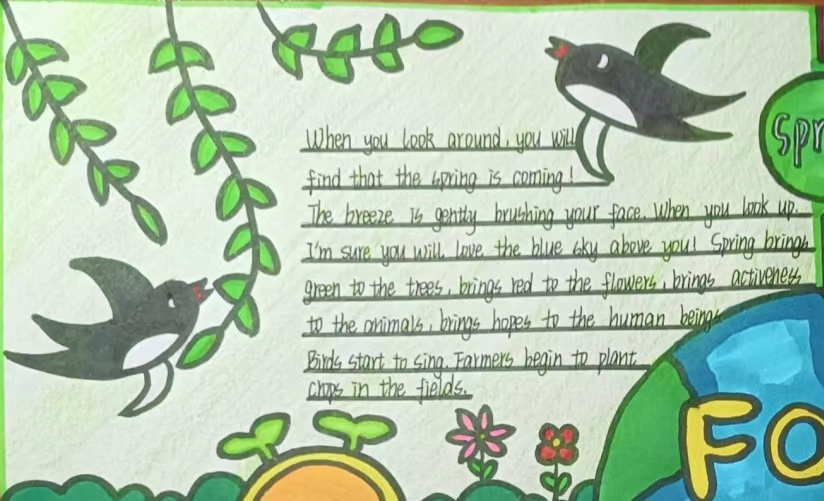 When you look around, you will
find that the spring is coming!
The breeze is gently brushing your face. When you look up.
I'm sure you will love the blue sky above you! Spring brings
green to the trees, brings red to the flowers, brings activeness
to the animals, brings hopes to the human beings
Birds start to sing. Farmers begin to plant
crops in the fields.
Spr
FO